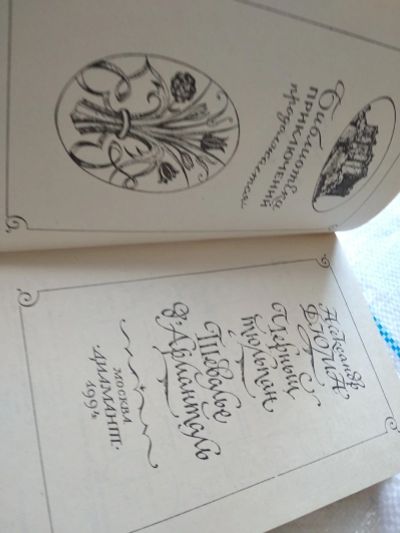 Библиотека
ПРИКЛЮЧЕНИЙ
продолжается...
Александр
ДЮМА
Черный
тюльпан
Шевалье
д'Арманталь
МОСКВА
ДИАМАНТ.
1994